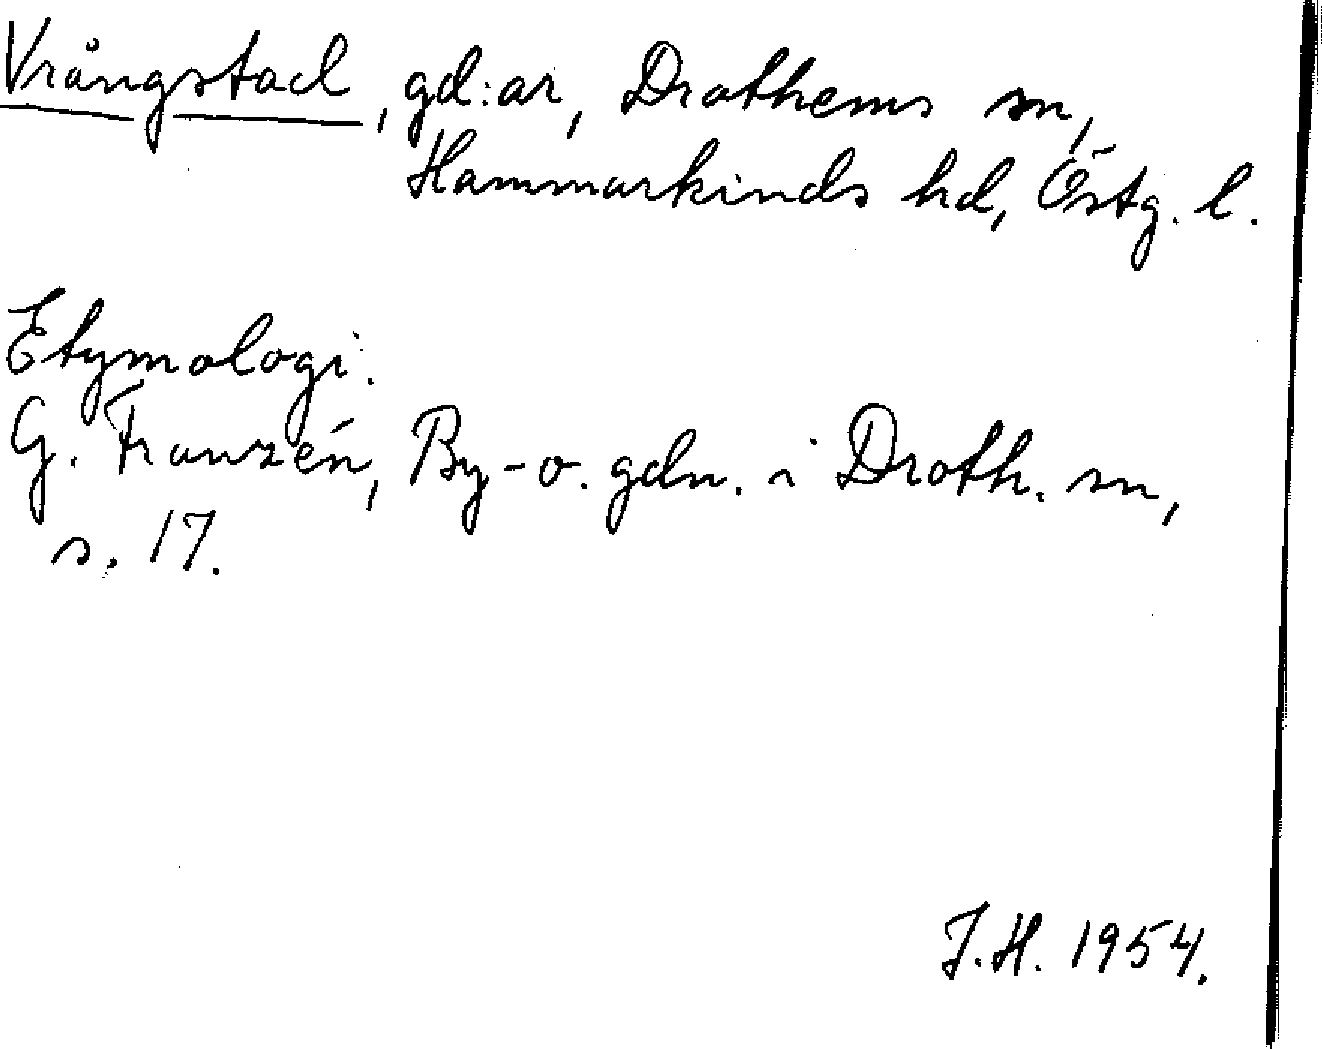 Vrångstad, gd:ar, Drothems sn,
Hammarkinds hd, Östg. l.
Etymologi.
G. Franzén, By- o. gdn. i Droth. sn,
s. 17.
J.H. 1954.